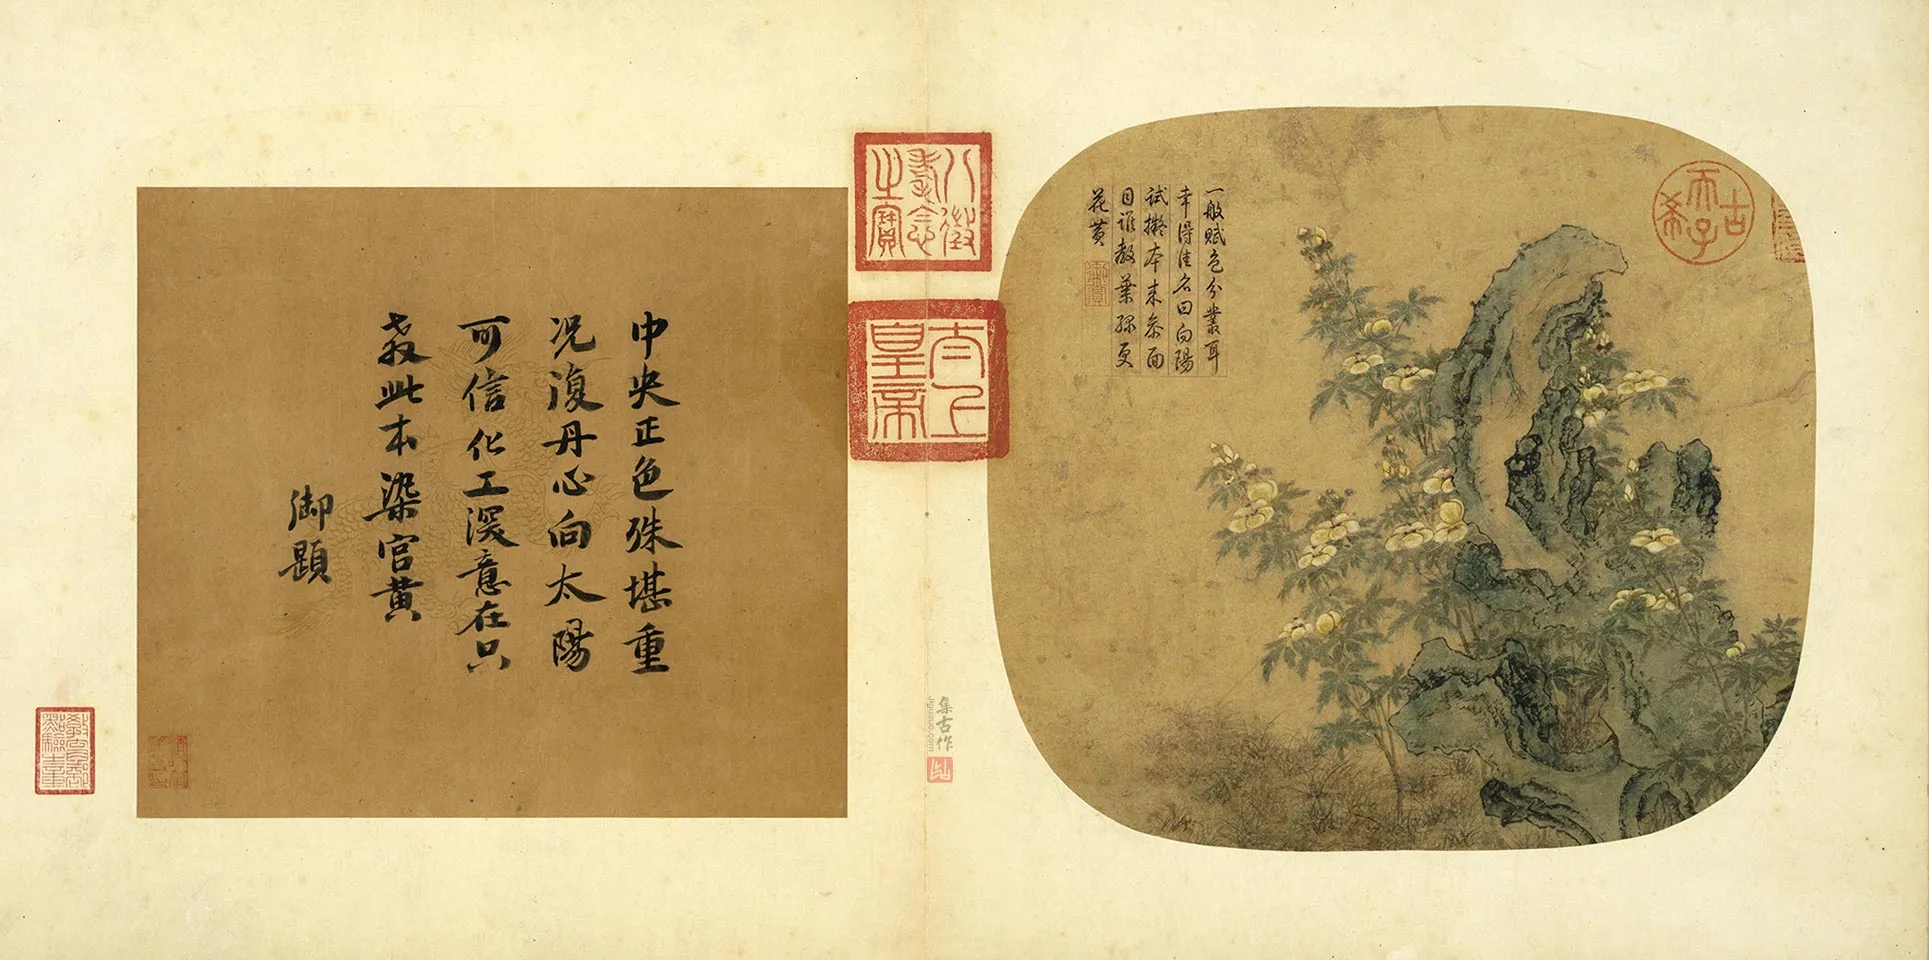 古希天子
一般賦色分叢耳
幸得佳名曰向陽
試擬本来參面
目誰教葉綠更
花黄
八徵耄念之寶
太上皇帝
中央正色殊堪重
况復丹心向太陽
可信化工深意在只
教此本染宫黄
御題
教育部點驗之章
集古作
jiguzuo.com